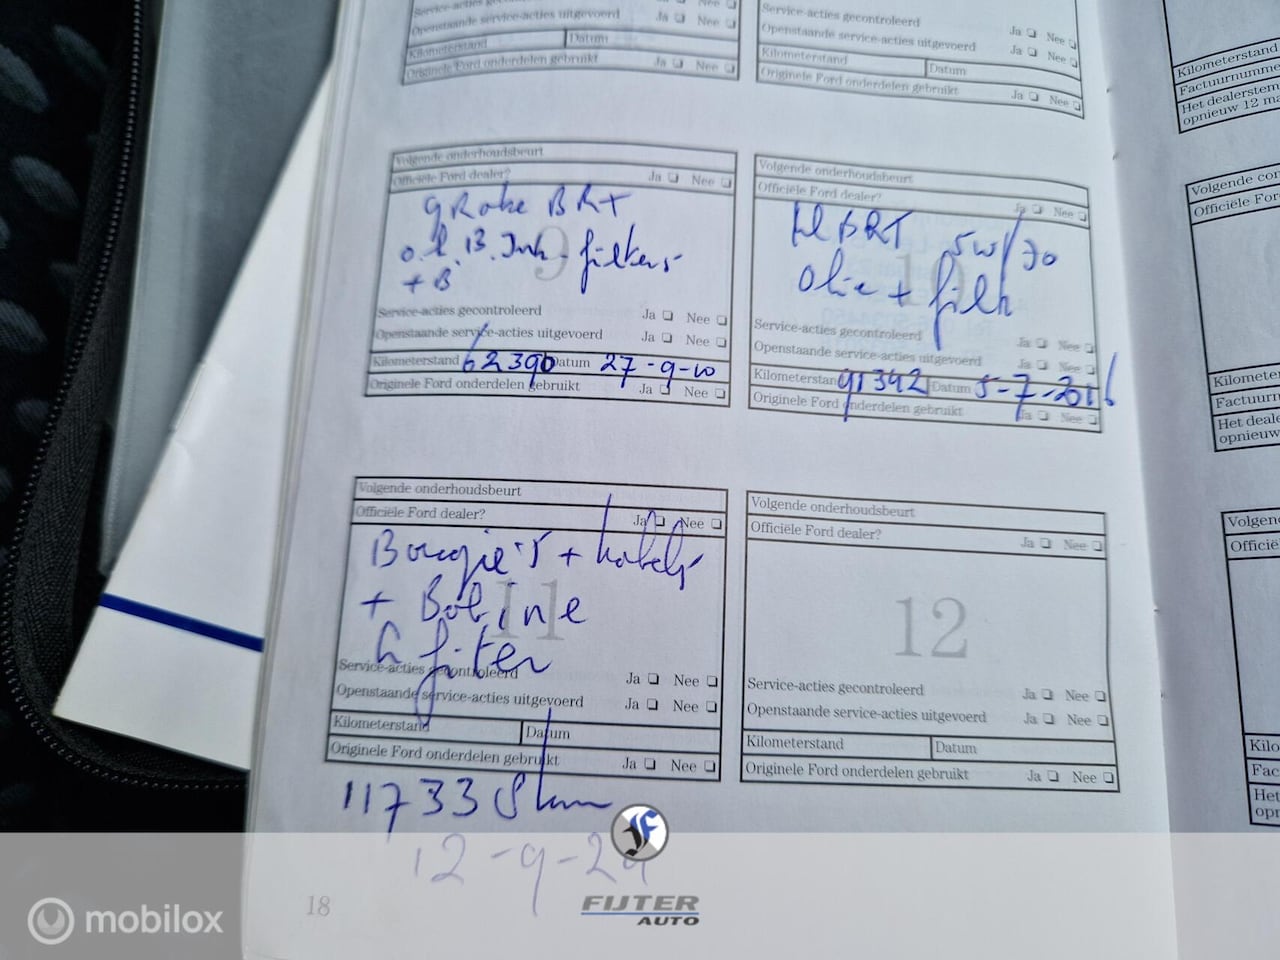 Service-acties gecontroleerd
Openstaande service-acties uitgevoerd Ja Nee
Kilometerstand Datum
Originele Ford onderdelen gebruikt Ja Nee
Service-acties gecontroleerd Ja Nee
Openstaande service-acties uitgevoerd Ja Nee
Kilometerstand Datum
Originele Ford onderdelen gebruikt Ja Nee
Kilometerstand
Factuurnumme
Het dealerstem
opnieuw 12 ma
Volgende onderhoudsbeurt
Officiële Ford dealer? Ja Nee
BRT
filters
+ B
9
Service-acties gecontroleerd Ja Nee
Openstaande service-acties uitgevoerd Ja Nee
Kilometerstand 62390 Datum 27-9-10
Originele Ford onderdelen gebruikt Ja Nee
Volgende onderhoudsbeurt
Officiële Ford dealer? Ja Nee
BRT 5W/30
Olie + filter
10
Service-acties gecontroleerd Ja Nee
Openstaande service-acties uitgevoerd Ja Nee
Kilometerstand 91342 Datum 5-7-2016
Originele Ford onderdelen gebruikt Ja Nee
Volgende con
Officiële For
Kilometer
Factuurn
Het deale
opnieuw
Volgende onderhoudsbeurt
Officiële Ford dealer? Ja Nee
Bougie's + kabels
+ Bobine
filter
11
Service-acties gecontroleerd Ja Nee
Openstaande service-acties uitgevoerd Ja Nee
Kilometerstand Datum
Originele Ford onderdelen gebruikt Ja Nee
117335km
12-9-24
Volgende onderhoudsbeurt
Officiële Ford dealer? Ja Nee
12
Service-acties gecontroleerd Ja Nee
Openstaande service-acties uitgevoerd Ja Nee
Kilometerstand Datum
Originele Ford onderdelen gebruikt Ja Nee
Volgen
Officië
Kilo
Fac
Het
opn
18
mobilox
F
FIJTER
AUTO